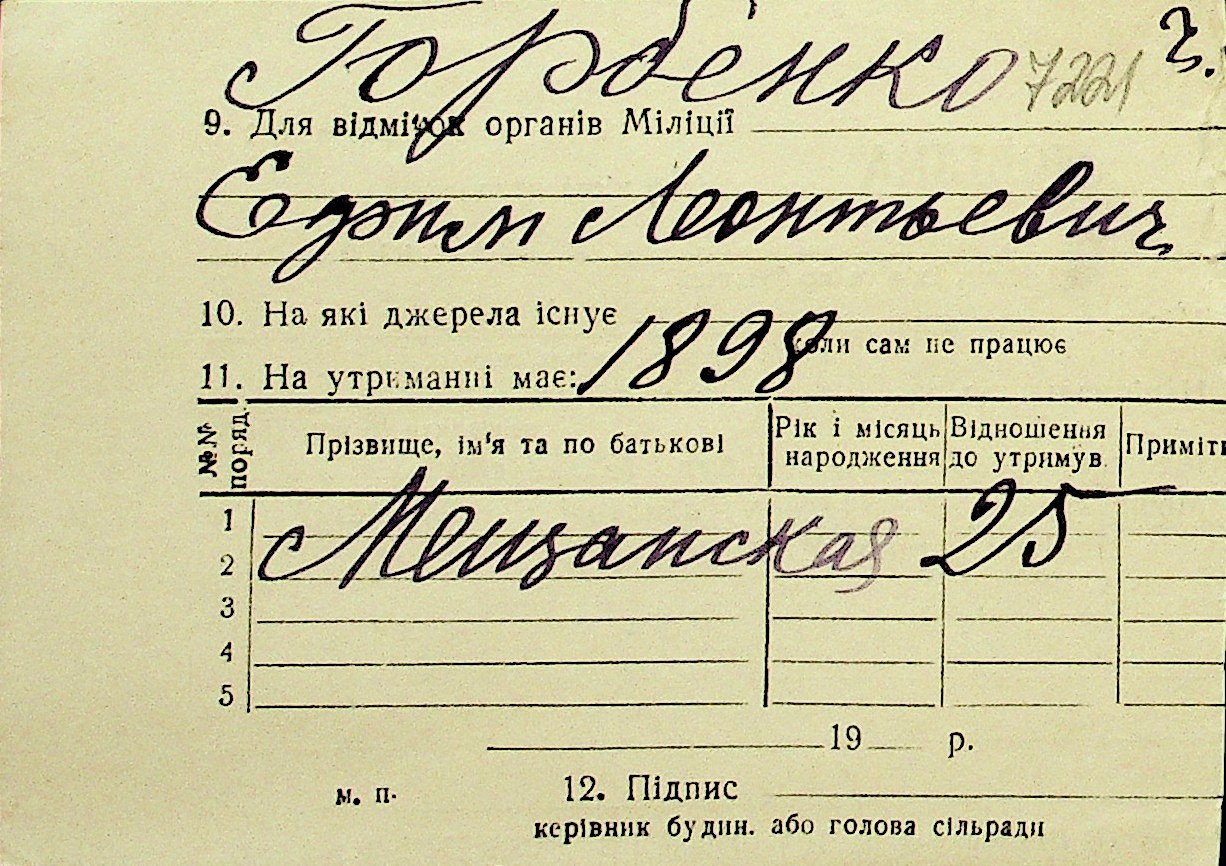 Горбенко 7221 г.
9. Для відміток органів Міліції
Ефим Леонтьевич
10. На які джерела існує
1898
коли сам не працює
11. На утриманні має:
№№ поряд. Прізвище, ім'я та по батькові Рік і місяць народження Відношення до утримув. Приміт
1
Мещанская 25
2
3
4
5
19 р.
м. п. 12. Підпис
керівник будин. або голова сільради